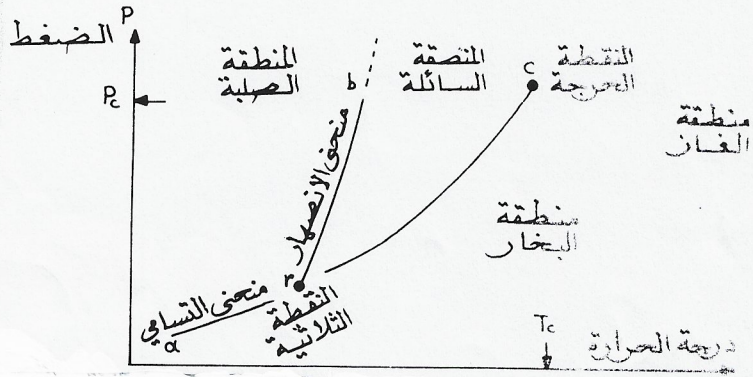 الضغط
P
المنطقة
الصلبة
المنصقة
السائلة
النقطة
الحرجة
c
b
Pc
منطقة
الغاز
منحنى الانصهار
منطقة
البخار
r
منحنى التسامي
a
النقطة
الثلاثية
Tc
درجة الحرارة